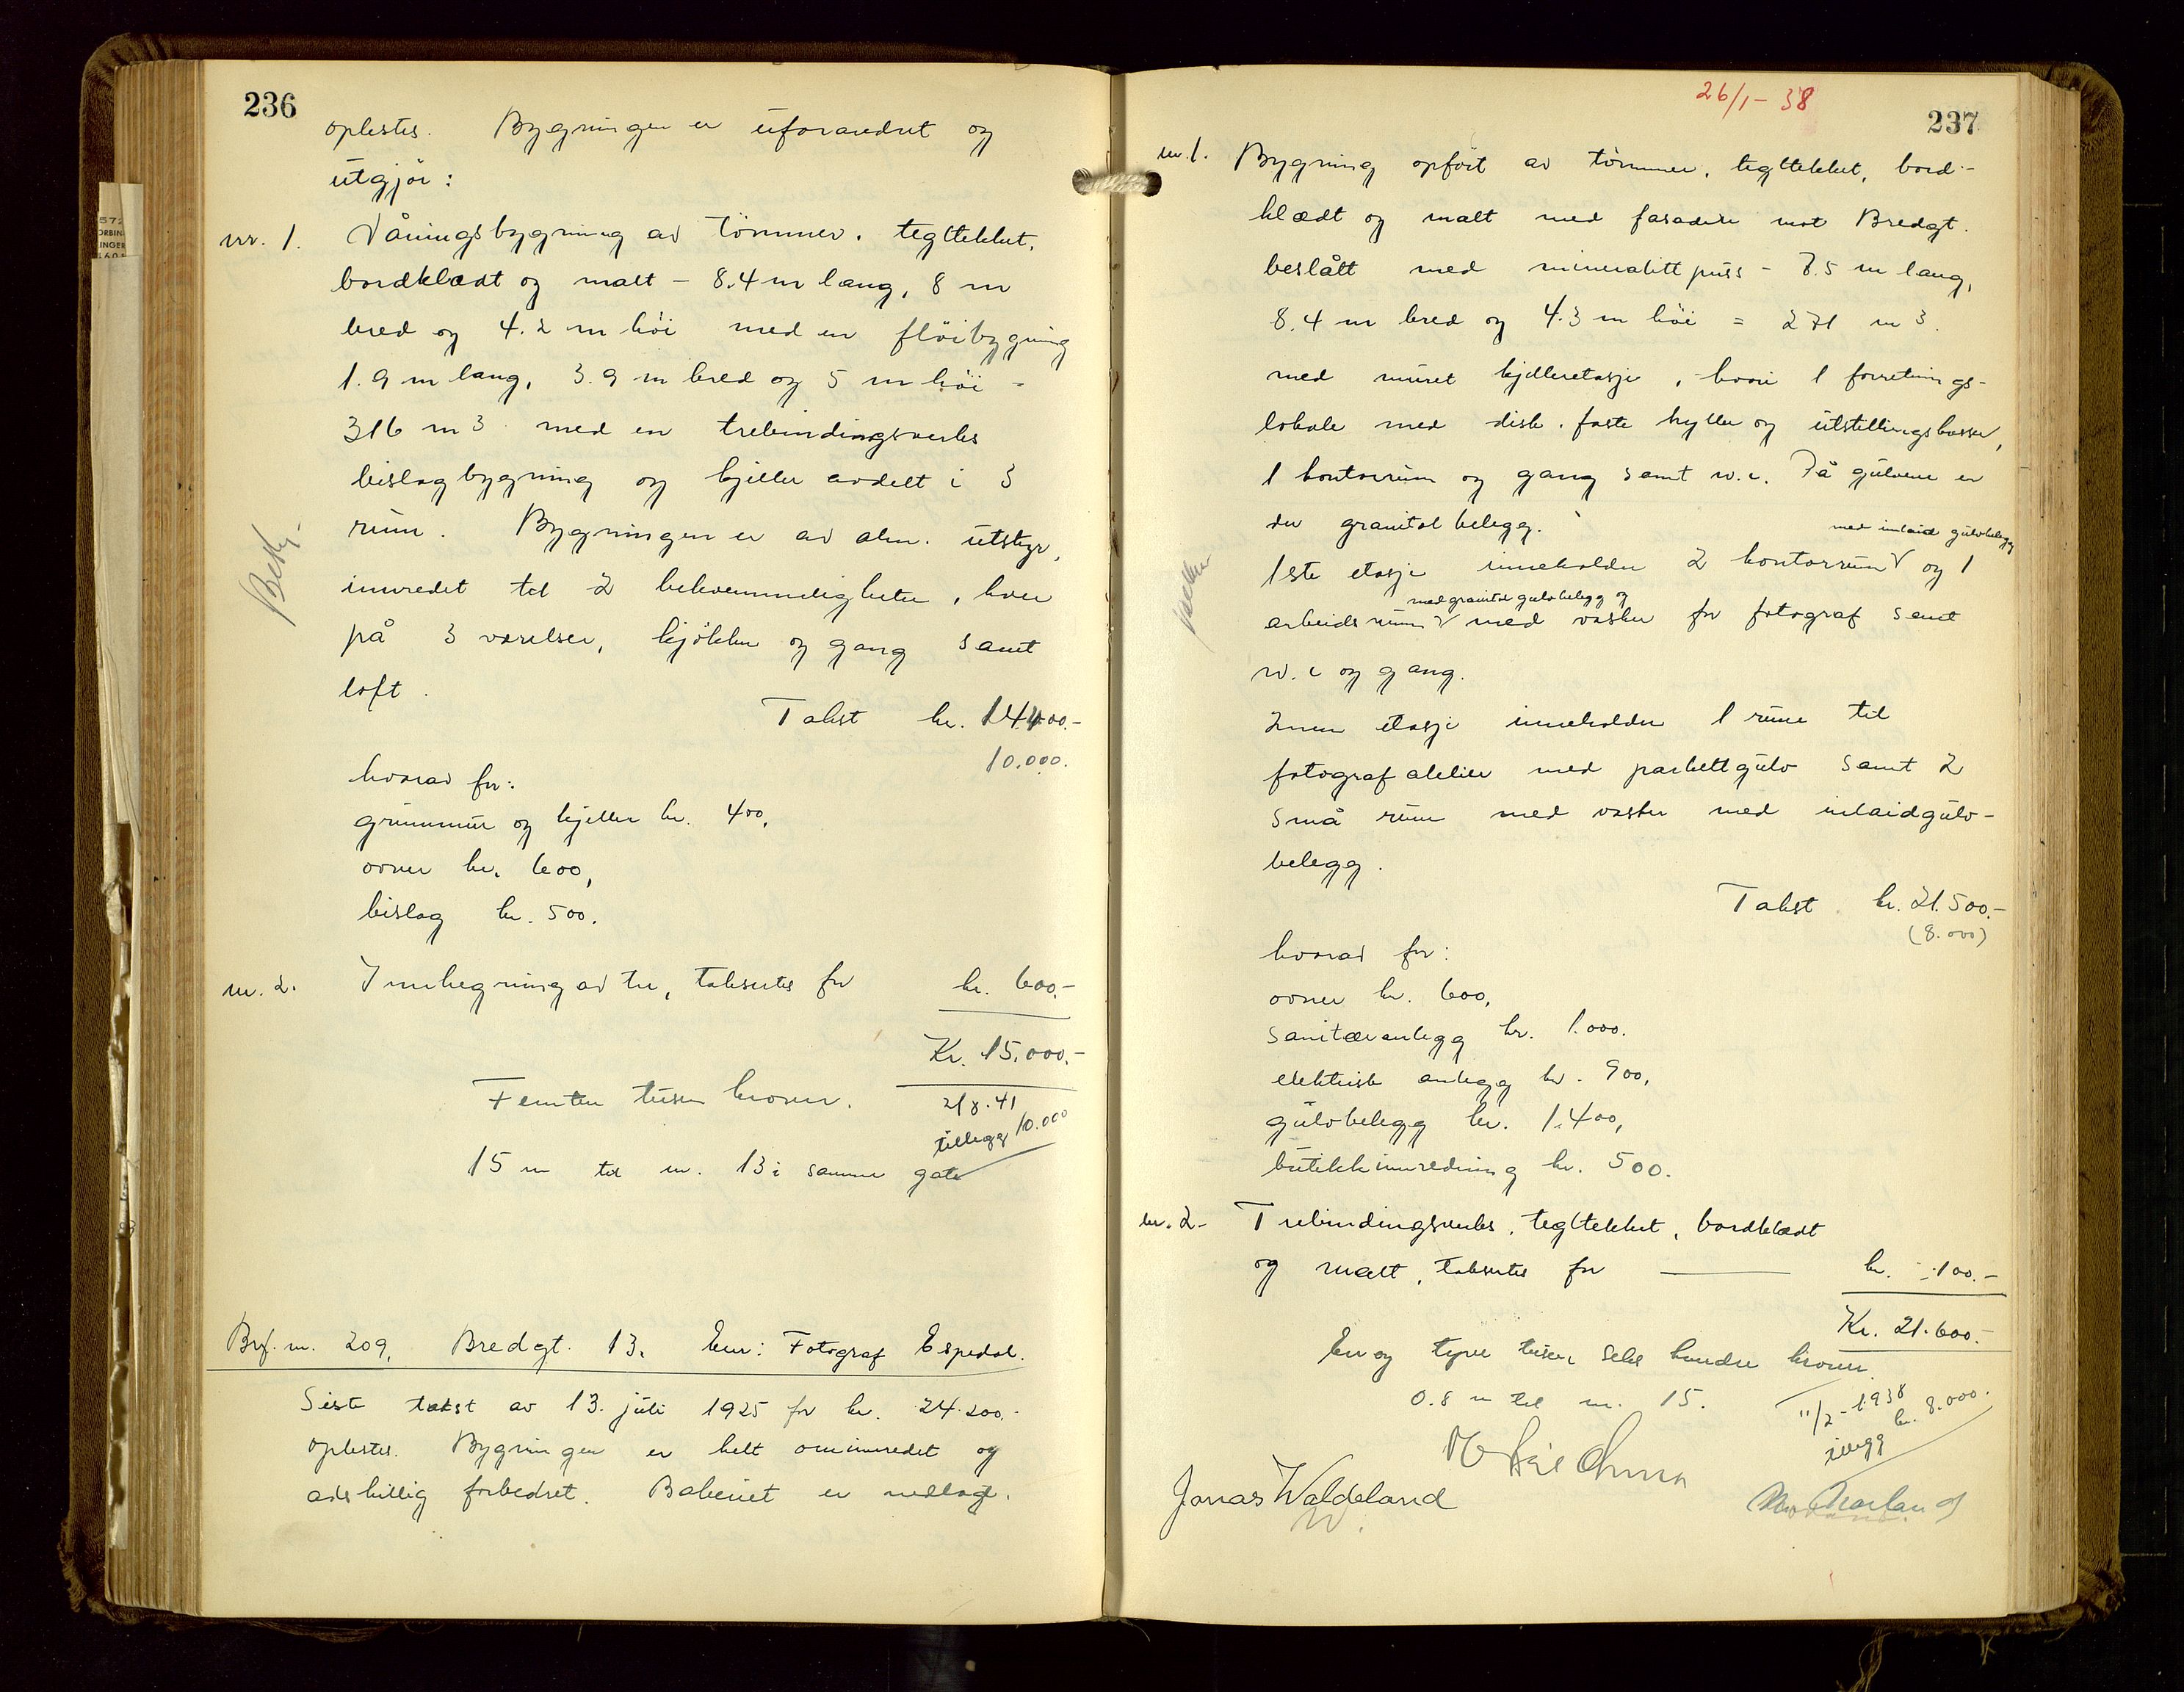 236
oplestes. Bygningen er uforandret og
utgjör:
nr. 1. Våningsbygning av tömmer, tegltekket,
bordklædt og malt - 8.4 m lang, 8 m
bred og 4.2 m höi med en flöibygning
1.9 m lang, 3.9 m bred og 5 m höi =
316 m3 med en trebindingsverks
bislagbygning og kjeller avdelt i 3
rum. Bygningen er av alm. utstyr,
innredet til 2 bekvemmeligheter, hver
på 3 værelser, kjökken og gang samt
loft.
Takst kr. 14.400.-
10.000.
hvorav for:
grunnmur og kjeller kr. 400,
ovner kr. 600,
bislag kr. 500.
nr. 2. Innhegning av tre, takseres for kr. 600.-
Kr. 15.000.-
Femten tusen kroner.
2/8.41
tillegg 10.000
15 m til nr. 13 i samme gate
Brf. nr. 209, Bredgt. 13. Eier: Fotograf Espedal.
Siste takst av 13. juli 1925 for kr. 24.200.-
oplestes. Bygningen er helt ominnredet og
adskillig forbedret. Bakeriet er nedlagt.
26/1-38
237
nr. 1. Bygning opfört av tömmer, tegltekket, bord-
klædt og malt med fasadene mot Bredgt.
beslått med mineralittpuss - 7.5 m lang,
8.4 m bred og 4.3 m höi = 271 m3.
med muret kjelleretasje, hvori 1 forretnings-
lokale med disk, faste hyller og utstillingskasser,
1 kontorrum og gang samt w.c. På gulvene er
der granitol belegg.
med inlaid gulvbelegg
1ste etasje inneholder 2 kontorrum og 1
med granitol gulvbelegg og
arbeidsrum med vasker for fotograf samt
w.c og gang.
2nen etasje inneholder 1 rum til
fotografatelier med parkettgulv samt 2
små rum med vasker med inlaidgulv-
belegg.
Takst kr. 21.500.-
(8.000)
hvorav for:
ovner kr. 600,
sanitæranlegg kr. 1.000.
elektrisk anlegg kr. 900,
gulvbelegg kr. 1.400,
butikkinnredning kr. 500.
nr. 2- Trebindingsverks, tegltekket, bordklædt
og malt, takseres for kr. 100.-
Kr. 21.600.-
En og tyve tusen seks hundre kroner.
0.8 m til nr. 15.
11/2-1938
tillegg kr. 8.000.
Jonas Waldeland